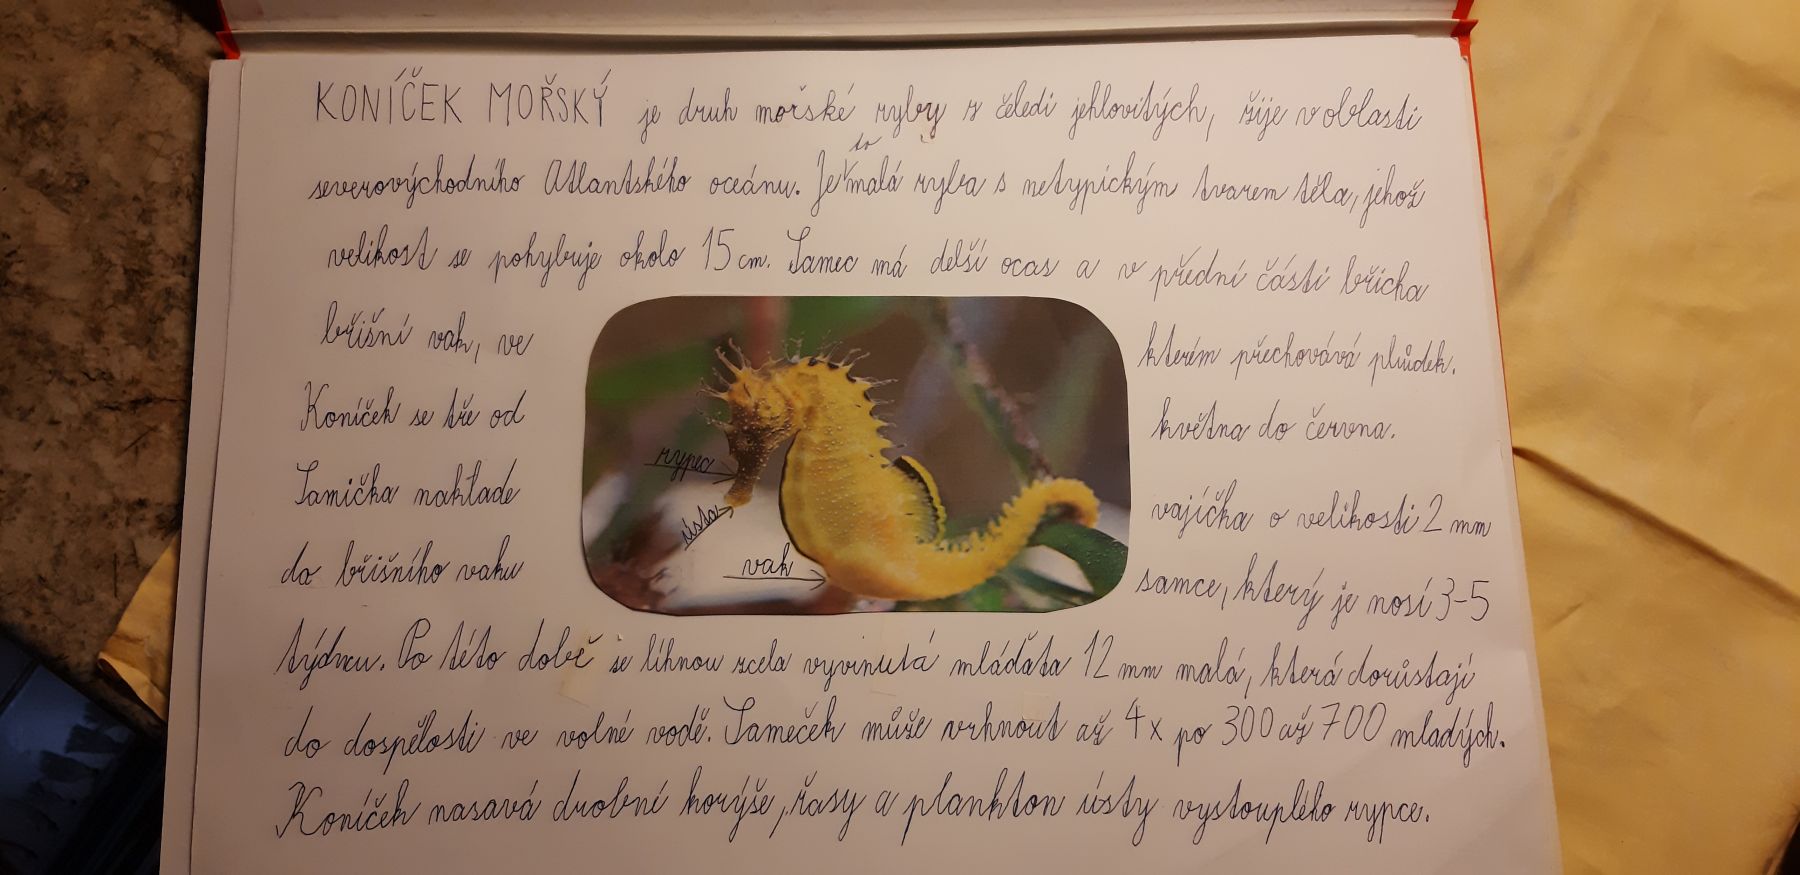 KONÍČEK MOŘSKÝ je druh mořské ryby z čeledi jehlovitých, žije v oblasti
severovýchodního Atlantského oceánu. Je to malá ryba s netypickým tvarem těla, jehož
velikost se pohybuje okolo 15 cm. Samec má delší ocas a v přední části břicha
břišní vak, ve kterém přechovává plůdek.
Koníček se tře od května do června.
Samička naklade vajíčka o velikosti 2 mm
do břišního vaku samce, který je nosí 3-5
týdnu. Po této době se líhnou zcela vyvinutá mláďata 12 mm malá, která dorůstají
do dospělosti ve volné vodě. Sameček může vrhnout až 4x po 300 až 700 mladých.
Koníček nasavá drobné korýše, řasy a plankton ústy vystouplého rypce.
rypec
ústa
vak